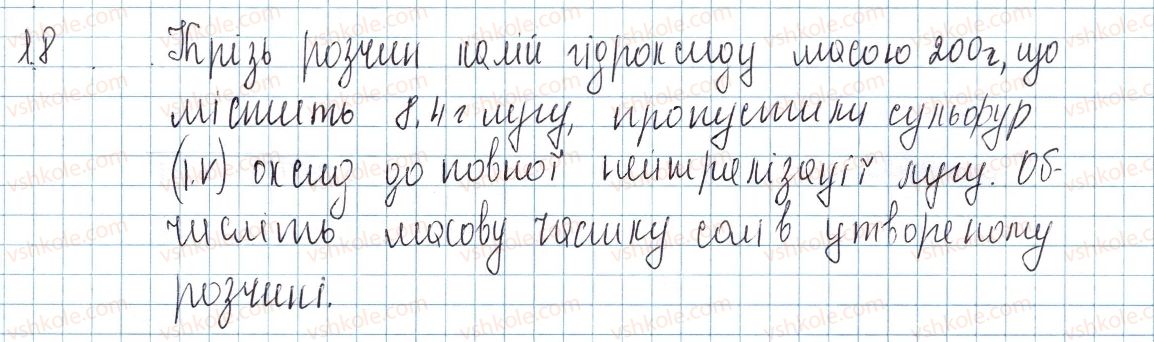 18 Крізь розчин калій гідроксиду масою 200г, що
містить 8,4г лугу, пропустили сульфур
(IV) оксид до повної нейтралізації лугу. Об-
числіть масову частку солі в утвореному
розчині.
vshkole.com